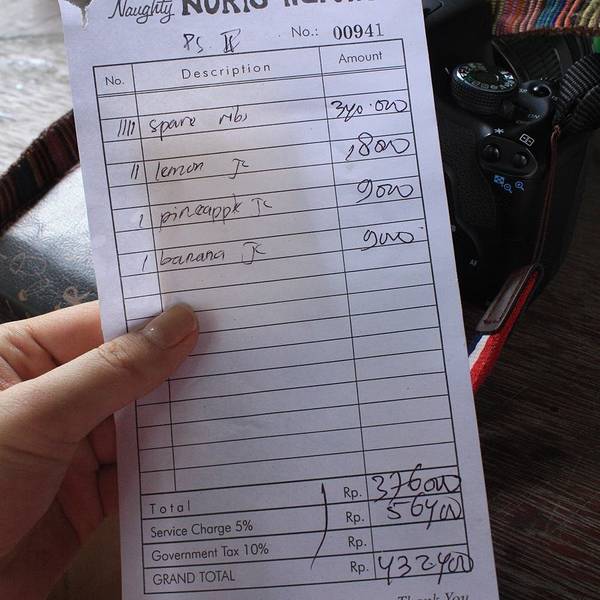 Naughty NURIS
PS II No.: 00941
No. Description Amount
IIII spare ribs 340.000
II lemon Jc 18000
I pineapple Jc 9000
I banana Jc 9000
Total Rp. 376000
Service Charge 5% Rp. 56400
Government Tax 10% Rp.
GRAND TOTAL Rp. 432400
Thank You